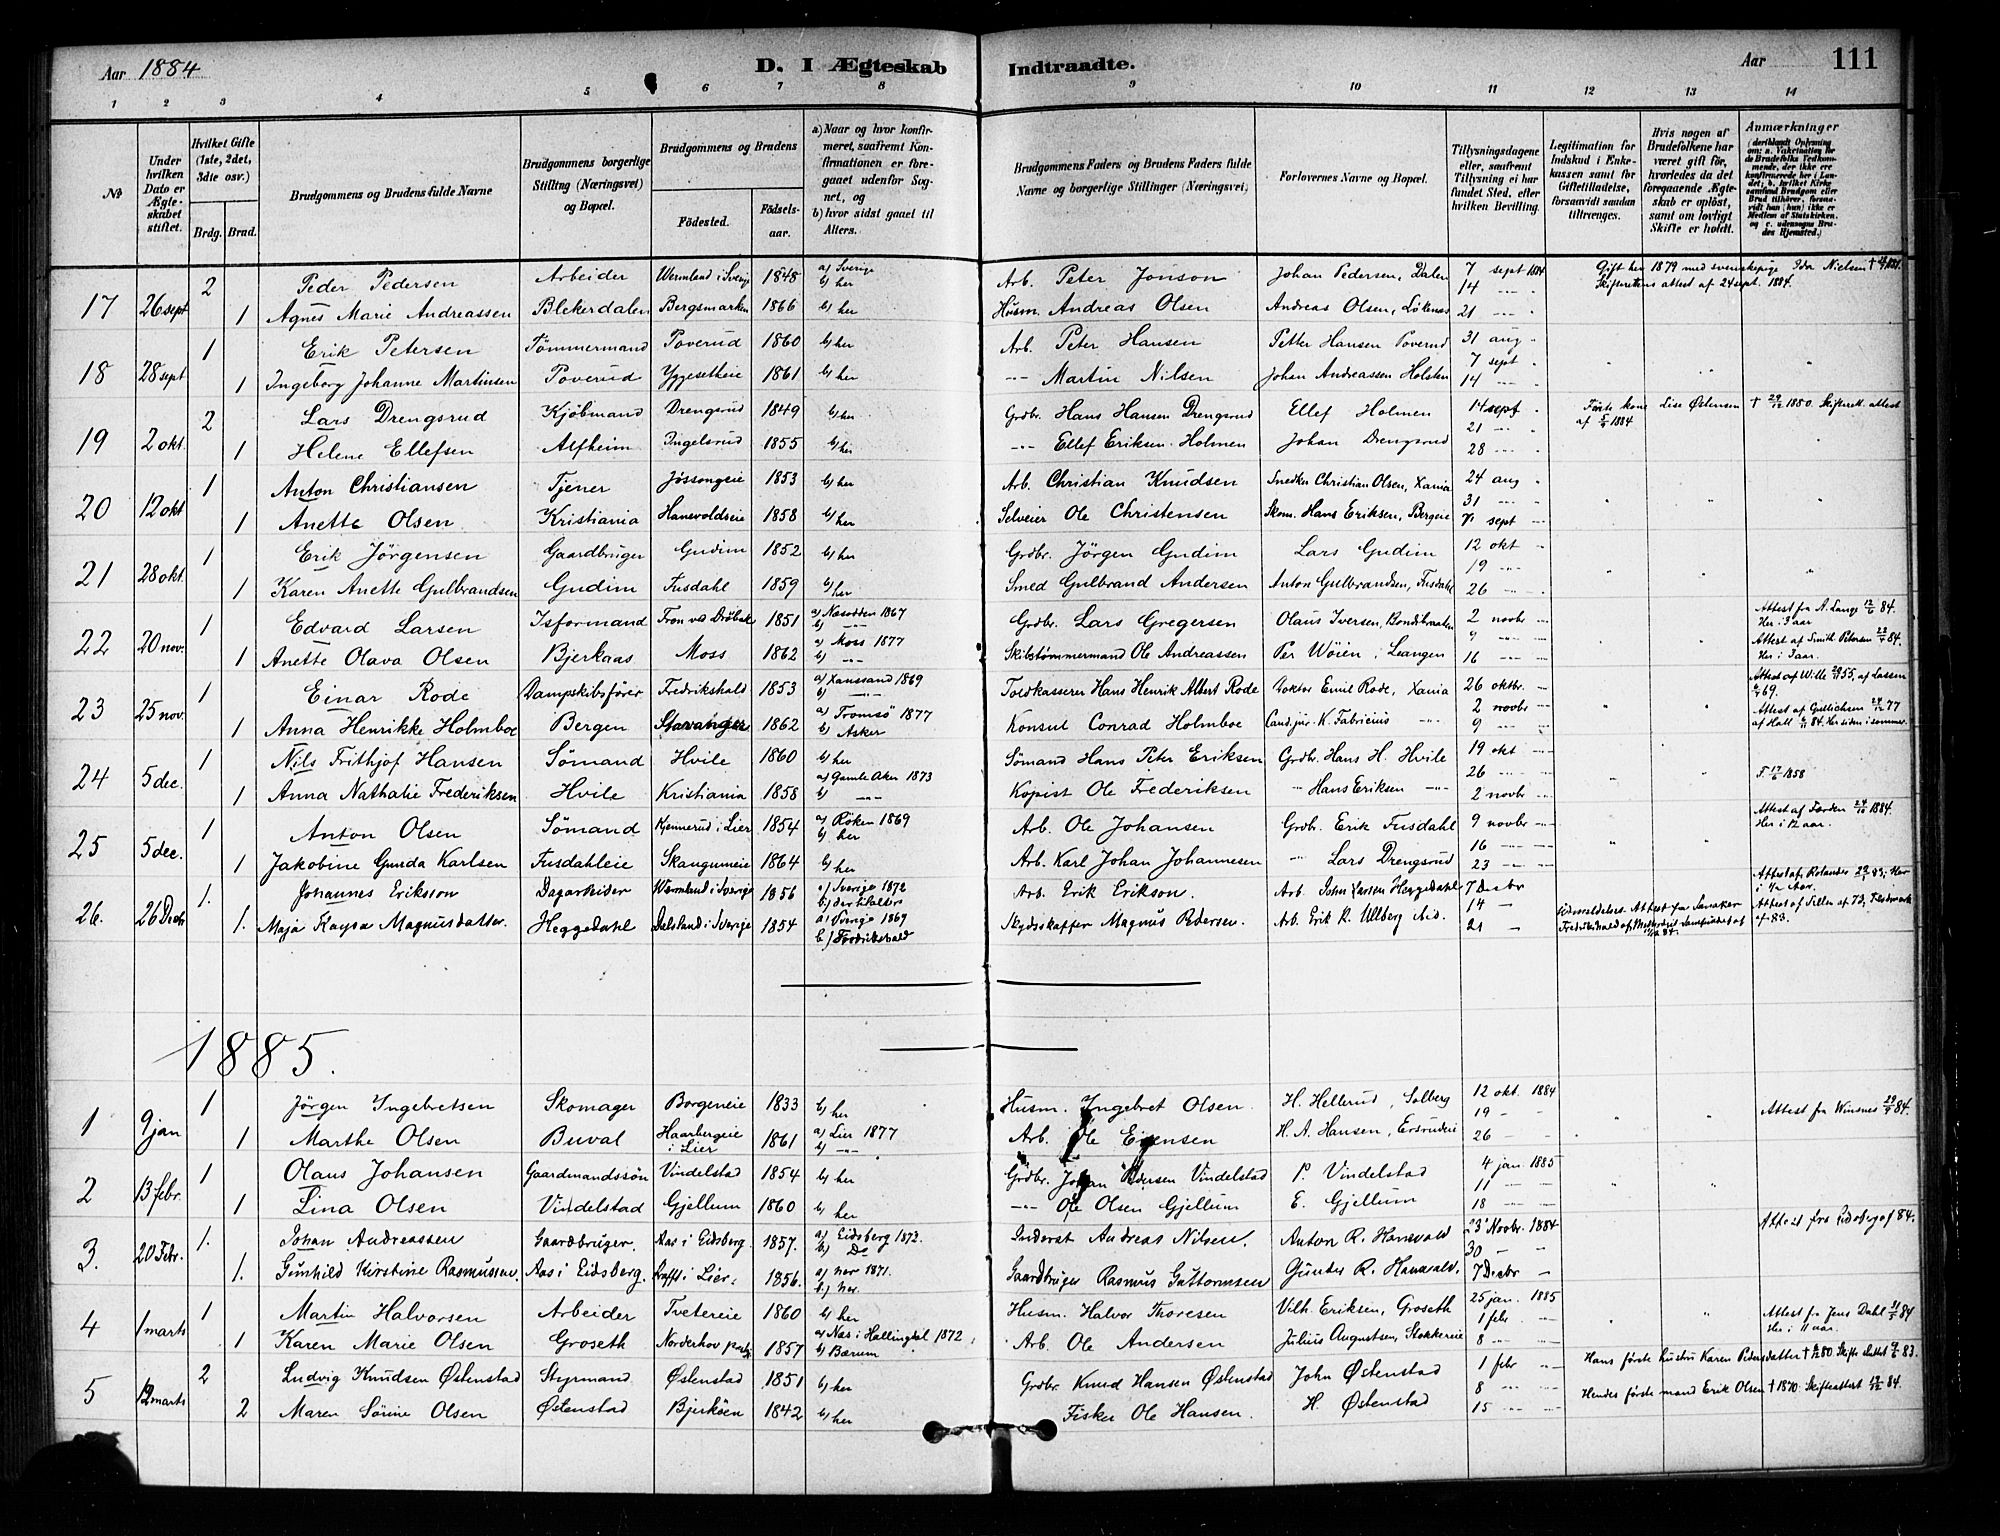 Aar 1884
D. I Ægteskab Indtraadte.
Aar 111
1 2 3 4 5 6 7 8 9 10 11 12 13 14
No
Under hvilken Dato er Ægteskabet stiftet.
Hvilket Gifte (1ste, 2det, 3die osv.)
Brdg. Brud.
Brudgommens og Brudens fulde Navne
Brudgommens borgerlige Stilling (Næringsvei) og Bopæl.
Brudgommens og Brudens
Fødested. Fødselsaar.
a) Naar og hvor konfirmeret, saafremt Konfirmationen er foregaaet udenfor Sognet, og
b) hvor sidst gaaet til Alters.
Brudgommens Faders og Brudens Faders fulde Navne og borgerlige Stillinger (Næringsvei)
Forlovernes Navne og Bopæl.
Tillysningsdagene eller, saafremt Tillysning ei har fundet Sted, efter hvilken Bevilling.
Legitimation for Indskud i Enkekassen samt for Giftetilladelse, forsaavidt saadan tiltrænges.
Hvis nogen af Brudefolkene har været gift før, hvorledes da det foregaaende Ægteskab er opløst, samt om lovligt Skifte er holdt.
Anmærkninger
(deriblandt Oplysning om: a. Vakcination for de Brudefolks Vedkommende, der ikke ere konfirmerede her i Landet; b. hvilket Kirkesamfund Brudgom eller Brud tilhører, forsaavidt han (hun) ikke er Medlem af Statskirken, og c. udensogns Brudes Hjemsted.)
17 26 sept 2 Peder Pedersen Arbeider Wermland i Sverige 1848 a) Sverige b) her Arb. Peter Jonson Johan Pedersen, Dalen 7 sept 1884 Gift her 1879 med svenskepige Ida Nielsen
1 Agnes Marie Andreassen Blekerdalen Bergsmarken 1866 b) her Husm. Andreas Olsen Andreas Olsen, Løkenes 14 21 Skifterettens attest af 24 sept. 1884.
18 28 sept 1 Erik Petersen Tømmermand Poverud 1860 b) her Arb. Peter Hansen Petter Hansen Poverud 31 aug
1 Ingeborg Johanne Martinsen Poverud Yggesetheie 1861 b) her Martin Nilsen Johan Andreassen Holsten 7 sept 14
19 2 okt. 2 Lars Drengsrud Kjøbmand Drengsrud 1849 b) her Grdbr. Hans Hansen Drengsrud Ellef Holmen 14 sept Første kone Lise Østensen † 29/12 1880. Skifterett. attest
1 Helene Ellefsen Alfheim Ingelsrud 1855 b) her Ellef Eriksen Holmen Johan Drengsrud 21 28 af 5/9 1884
20 12 okt 1 Anton Christiansen Tjener Jøssongeie 1853 b) her Arb. Christian Knudsen Snedker Christian Olsen, Xania 24 aug
1 Anette Olsen Kristiania Hanevoldseie 1858 b) her Selveier Ole Christensen Skom. Hans Eriksen, Bergeie 31 7 sept
21 28 okt. 1 Erik Jörgensen Gaardbruger Gudim 1852 b) her Grdbr. Jörgen Gudim Lars Gudim 12 okt
1 Karen Anette Gulbrandsen Gudim Fusdahl 1859 b) her Smed Gulbrand Andersen Anton Gulbrandsen, Fusdahl 19 26
22 20 nov. 1 Edvard Larsen Isformand Fron v/s Drøbak 1851 a) Næsodden 1867 b) Grdbr. Lars Gregersen Olaus Iversen, Bondibraaten 2 novbr Attest fra A. Lange 12/6 84. Her i 3 aar
1 Anette Olava Olsen Bjerkaas Moss 1862 a) Moss 1877 b) Skibstømmermand Ole Andreassen Per Wöien i Leangen 9 16 Attest af Smith Petersen 84. Her i 3 aar.
23 25 nov. 1 Einar Rode Dampskibsfører Fredrikshald 1853 a) Xanssand 1869 b) Toldkasserer Hans Henrik Albert Rode Doktor Emil Rode, Xania 26 oktbr. Attest af Wille 55, af Lassen 69.
1 Anna Henrikke Holmboe Bergen Stavanger 1862 a) Tromsö 1877 b) Asker Konsul Conrad Holmboe Cand. jur. K. Fabricius 2 novbr 9 Attest af Gullichsen 77 af Hall 84. Her siden i sommer.
24 5 dec. 1 Nils Frithjof Hansen Sömand Hvile 1860 b) her Sömand Hans Peter Eriksen Grdbr. Hans H. Hvile 19 okt
1 Anna Nathalie Frederiksen Hvile Kristiania 1858 a) Gamle Aker 1873 b) Kopist Ole Frederiksen " Hans Eriksen 26 2 novbr F. 17/6 1858
25 5 dec. 1 Anton Olsen Sömand Kjennerud i Lier 1854 a) Röken 1869 b) her Arb. Ole Johansen Grdb. Erik Fusdahl 9 novbr Attest af Færden 24/10 1884. Her i 12 aar.
1 Jakobine Gunda Karlsen Fusdahleie Skangumeie 1864 b) her Arb. Karl Johan Johannesen " Lars Drengsrud 16 23
26. 26 Decbr 1. Johannes Eriksson Dagarbeider Wermland i Sverige 1856 a) Sverige 1872 b) Arb. Erik Erikson. Arb. John Larsen Heggedahl 7 Decbr
1. Maja Kaysa Magnusdatter. Heggedahl Dalsland i Sverige 1854 a) Sverige 1869 b) Fredrikshald Skydsskaffer Magnus Pedersen. Arb. Erik R. Ullberg ibid. 14 21
1885.
1 9 jan 1 Jörgen Ingebretsen Skomager Borgeneie 1833 b) her Husm. Ingebret Olsen H. Hellerud, Solberg 12 okt. 1884
1 Marthe Olsen Buval Haarbergeie i Lier 1861 a) Lier 1877 b) Arb. Ole Evensen H. A. Hansen, 19 26 Attest fra Winsnes 29/9 84.
2 13 febr. 1 Olaus Johansen Gaardmandssön Vindelstad 1854 b) her Grdbr. Johan Pedersen Vindelstad P. Vindelstad 4 jan. 1885
1 Lina Olsen Vindelstad Gjellum 1860 b) her Ole Olsen Gjellum E. Gjellum 11 18
3. 20 Febr. 1. Johan Andreassen Gaardbruger. Aas i Eidsberg. 1857. a) Eidsberg 1872. b) Do Inderst Andreas Nilsen. Anton R. Hanevald 23 Novbr. 1884 Attest fra Eidsberg af 84.
1. Gunhild Kirstine Rasmussen. Aas i Eidsberg. i Lier. 1856. a) her 1871. b) her. Gaardbruger Rasmus Guttormsen Gunder R. Hanevald. 30 7 Decbr
4 1 marts 1 Martin Halvorsen Arbeider Tvetereie 1860 b) her Husm. Halvor Thoresen Vilh. Eriksen, Groseth 25 jan. 1885
1 Karen Marie Olsen Groseth Norderhov 1857 a) Nas i Hallingdal 1872 b) Bærum Arb. Ole Andersen Julius Augustsen, Stokkereie 1 febr 8 Attest fra Jens Dahl 84 Her i 11 aar.
5 12 marts 2 Ludvig Knudsen Østenstad Styrmand Østenstad 1851 b) her Grdbr. Knud Hansen Østenstad John Østenstad 1 febr Hans første hustru Karen Pedersdatter † 80 Skifte sluttet 83.
2 Maren Sönne Olsen Østenstad Bjerköen 1842 b) her Fisker Ole Hansen. H. Østenstad 8 15 Hendes første mand Erik Olsen † 1870. Skifteattest 84.